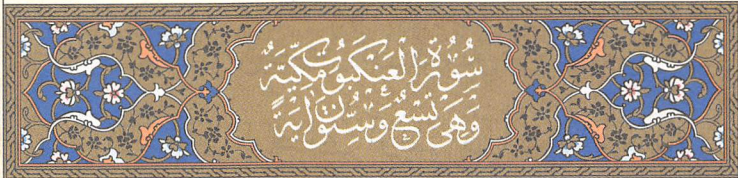 سُورَةُ الْعَنْكَبُوتِ مَكِّيَّةٌ
وَهِيَ تِسْعٌ وَسِتُّونَ اٰيَةً